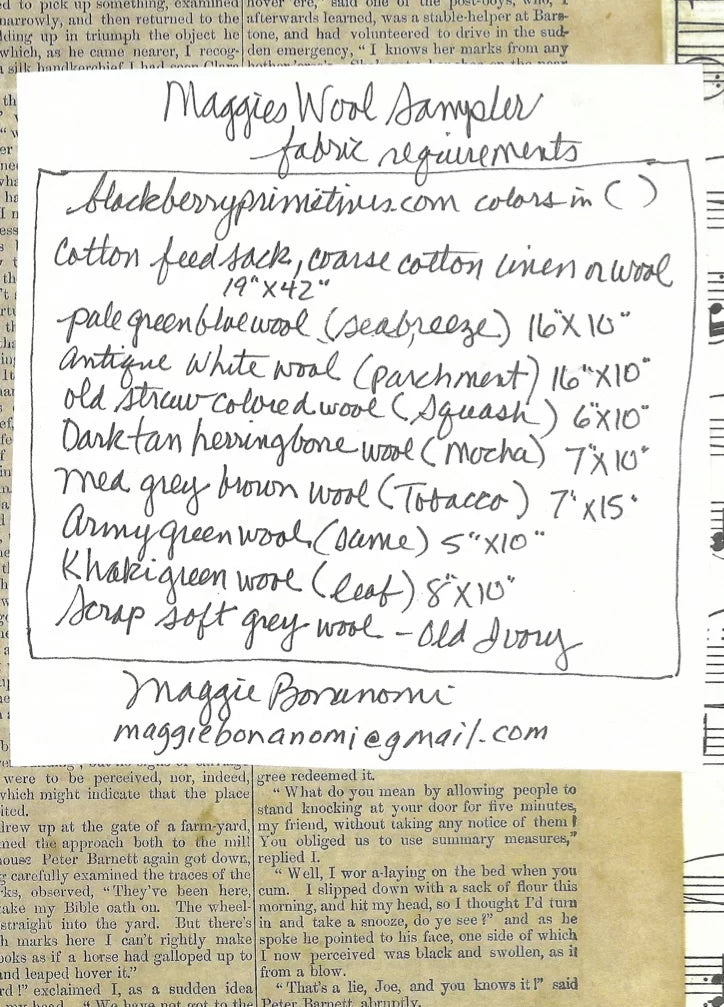 ed to pick up something, examined
narrowly, and then returned to the
lding up in triumph the object he
which, as he came nearer, I recog-
silk handkerchief I had seen
hover ere," said one of the post-boys, who, I
afterwards learned, was a stable-helper at Bars-
tone, and had volunteered to drive in the sud-
den emergency, "I knows her marks from any
Maggies Wool Sampler
fabric requirements
blackberryprimitives.com colors in ( )
Cotton feed sack, coarse cotton linen or wool
19"X42"
pale green blue wool (seabreeze) 16"X10"
antique white wool (parchment) 16"X10"
old straw colored wool (Squash) 6"X10"
Dark tan herringbone wool (Mocha) 7"X10"
med grey brown wool (Tobacco) 7"X15"
Army green wool (same) 5"X10"
Khaki green wool (leaf) 8"X10"
Scrap soft grey wool - Old Ivory
Maggie Bonanomi
maggiebonanomi@gmail.com
were to be perceived, nor, indeed,
which might indicate that the place
ited.
drew up at the gate of a farm-yard,
ned the approach both to the mill
ouse Peter Barnett again got down,
g carefully examined the traces of the
ks, observed, "They've been here,
ake my Bible oath on. The wheel-
straight into the yard. But there's
h marks here I can't rightly make
ooks as if a horse had galloped up to
and leaped hover it."
rd!" exclaimed I, as a sudden idea
"We have not got to the
gree redeemed it.
"What do you mean by allowing people to
stand knocking at your door for five minutes,
my friend, without taking any notice of them?
You obliged us to use summary measures,"
replied I.
"Well, I wor a-laying on the bed when you
cum. I slipped down with a sack of flour this
morning, and hit my head, so I thought I'd turn
in and take a snooze, do ye see?" and as he
spoke he pointed to his face, one side of which
I now perceived was black and swollen, as if
from a blow.
"That's a lie, Joe, and you knows it!" said
Peter Barnett abruptly.